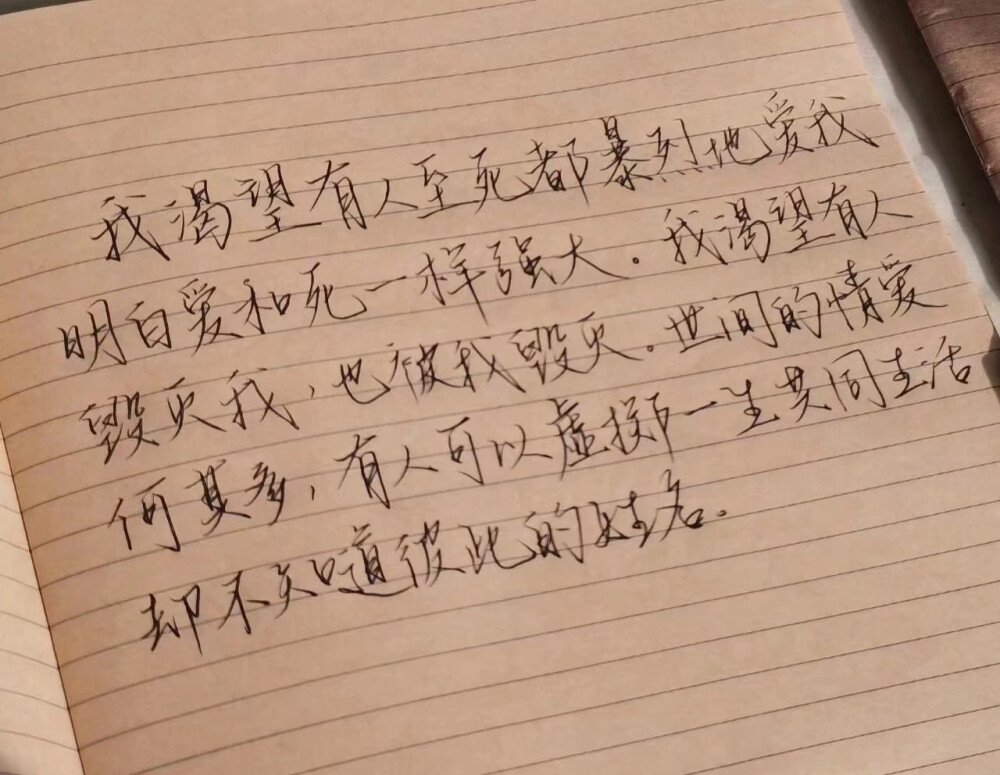 我渴望有人至死都暴烈地爱我
明白爱和死一样强大.我渴望有人
毁灭我,也被我毁灭.世间的情爱
何其多,有人可以虚掷一生共同生活
却不知道彼此的姓名.